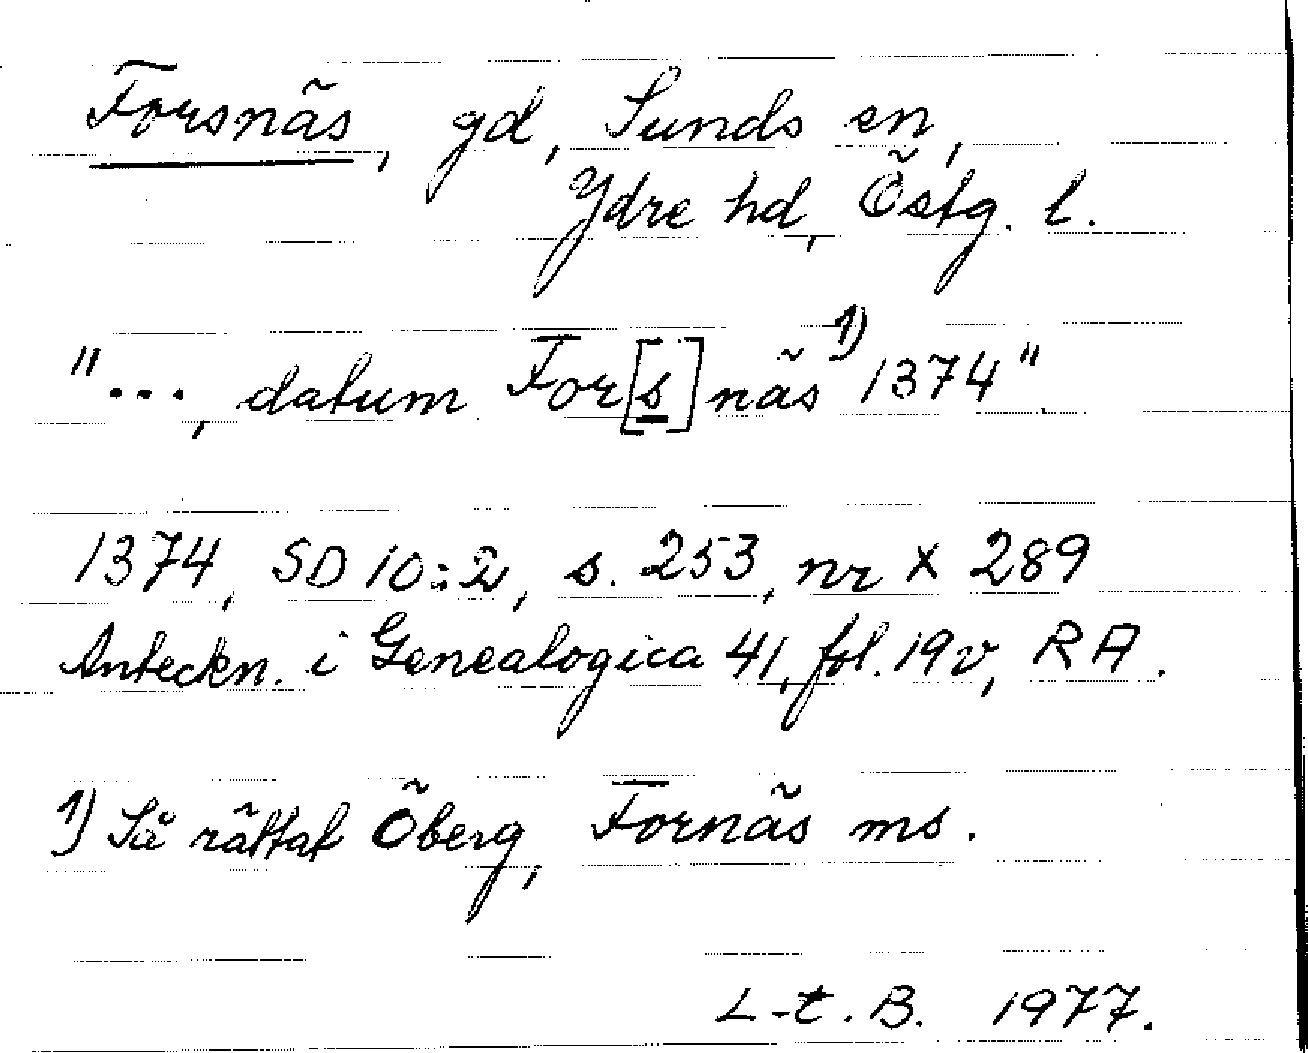 Forsnäs, gd, Sunds sn,
Ydre hd, Östg. l.
"..., datum For[s]näs 1) 1374"
1374, SD 10:2, s. 253, nr X 289
Anteckn. i Genealogica 41, fol. 19v, RA.
1) Så rättat Öberg, Fornäs ms.
L-t. B. 1977.